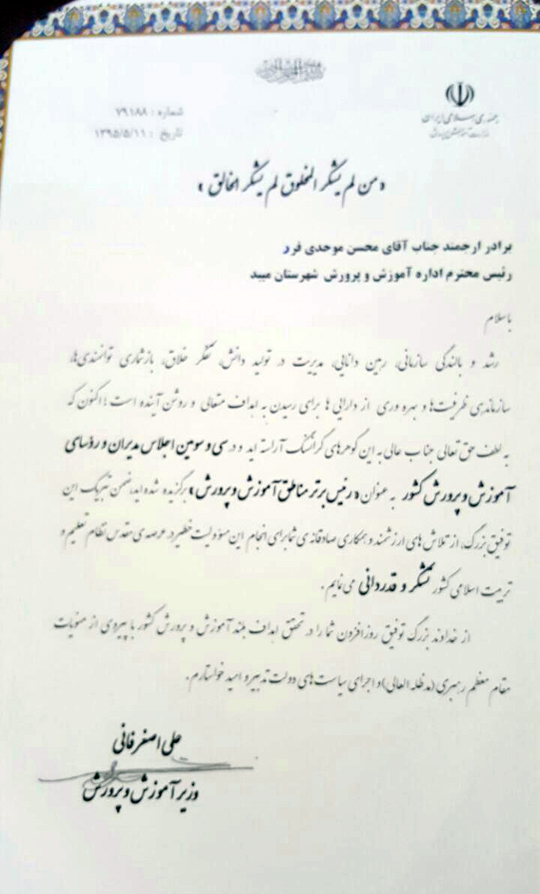 جمهوری اسلامی ایران
وزارت آموزش و پرورش
شماره : ۷۹۱۸۸
تاریخ : ۱۳۹۵/۵/۱۱
«من لم یشکر المخلوق لم یشکر الخالق»
برادر ارجمند جناب آقای محسن موحدی فرد
رئیس محترم اداره آموزش و پرورش شهرستان میبد
باسلام
رشد و بالندگی سازمانی، رهین دانایی، مدیریت در تولید دانش، تفکر خلاق، بازشماری توانمندی‌ها،
سازماندهی ظرفیت‌ها و بهره وری از دارایی ها برای رسیدن به اهداف متعالی و روشن آینده است؛ اکنون که
به لطف حق تعالی جناب عالی به این گوهرهای گرانسنگ آراسته اید و در سی و سومین اجلاس مدیران و رؤسای
آموزش و پرورش کشور به عنوان «رئیس برتر مناطق آموزش و پرورش» برگزیده شده اید، ضمن تبریک این
توفیق بزرگ، از تلاش های ارزشمند و همکاری صادقانه ی شما برای انجام این مسؤولیت خطیر در عرصه ی مقدس نظام تعلیم و
تربیت اسلامی کشور تشکر و قدردانی می نمایم.
از خداوند بزرگ توفیق روز افزون شما را در تحقق اهداف بلند آموزش و پرورش کشور با پیروی از منویات
مقام معظم رهبری (مدظله العالی) و اجرای سیاست های دولت تدبیر و امید خواستارم.
علی اصغر فانی
وزیر آموزش و پرورش